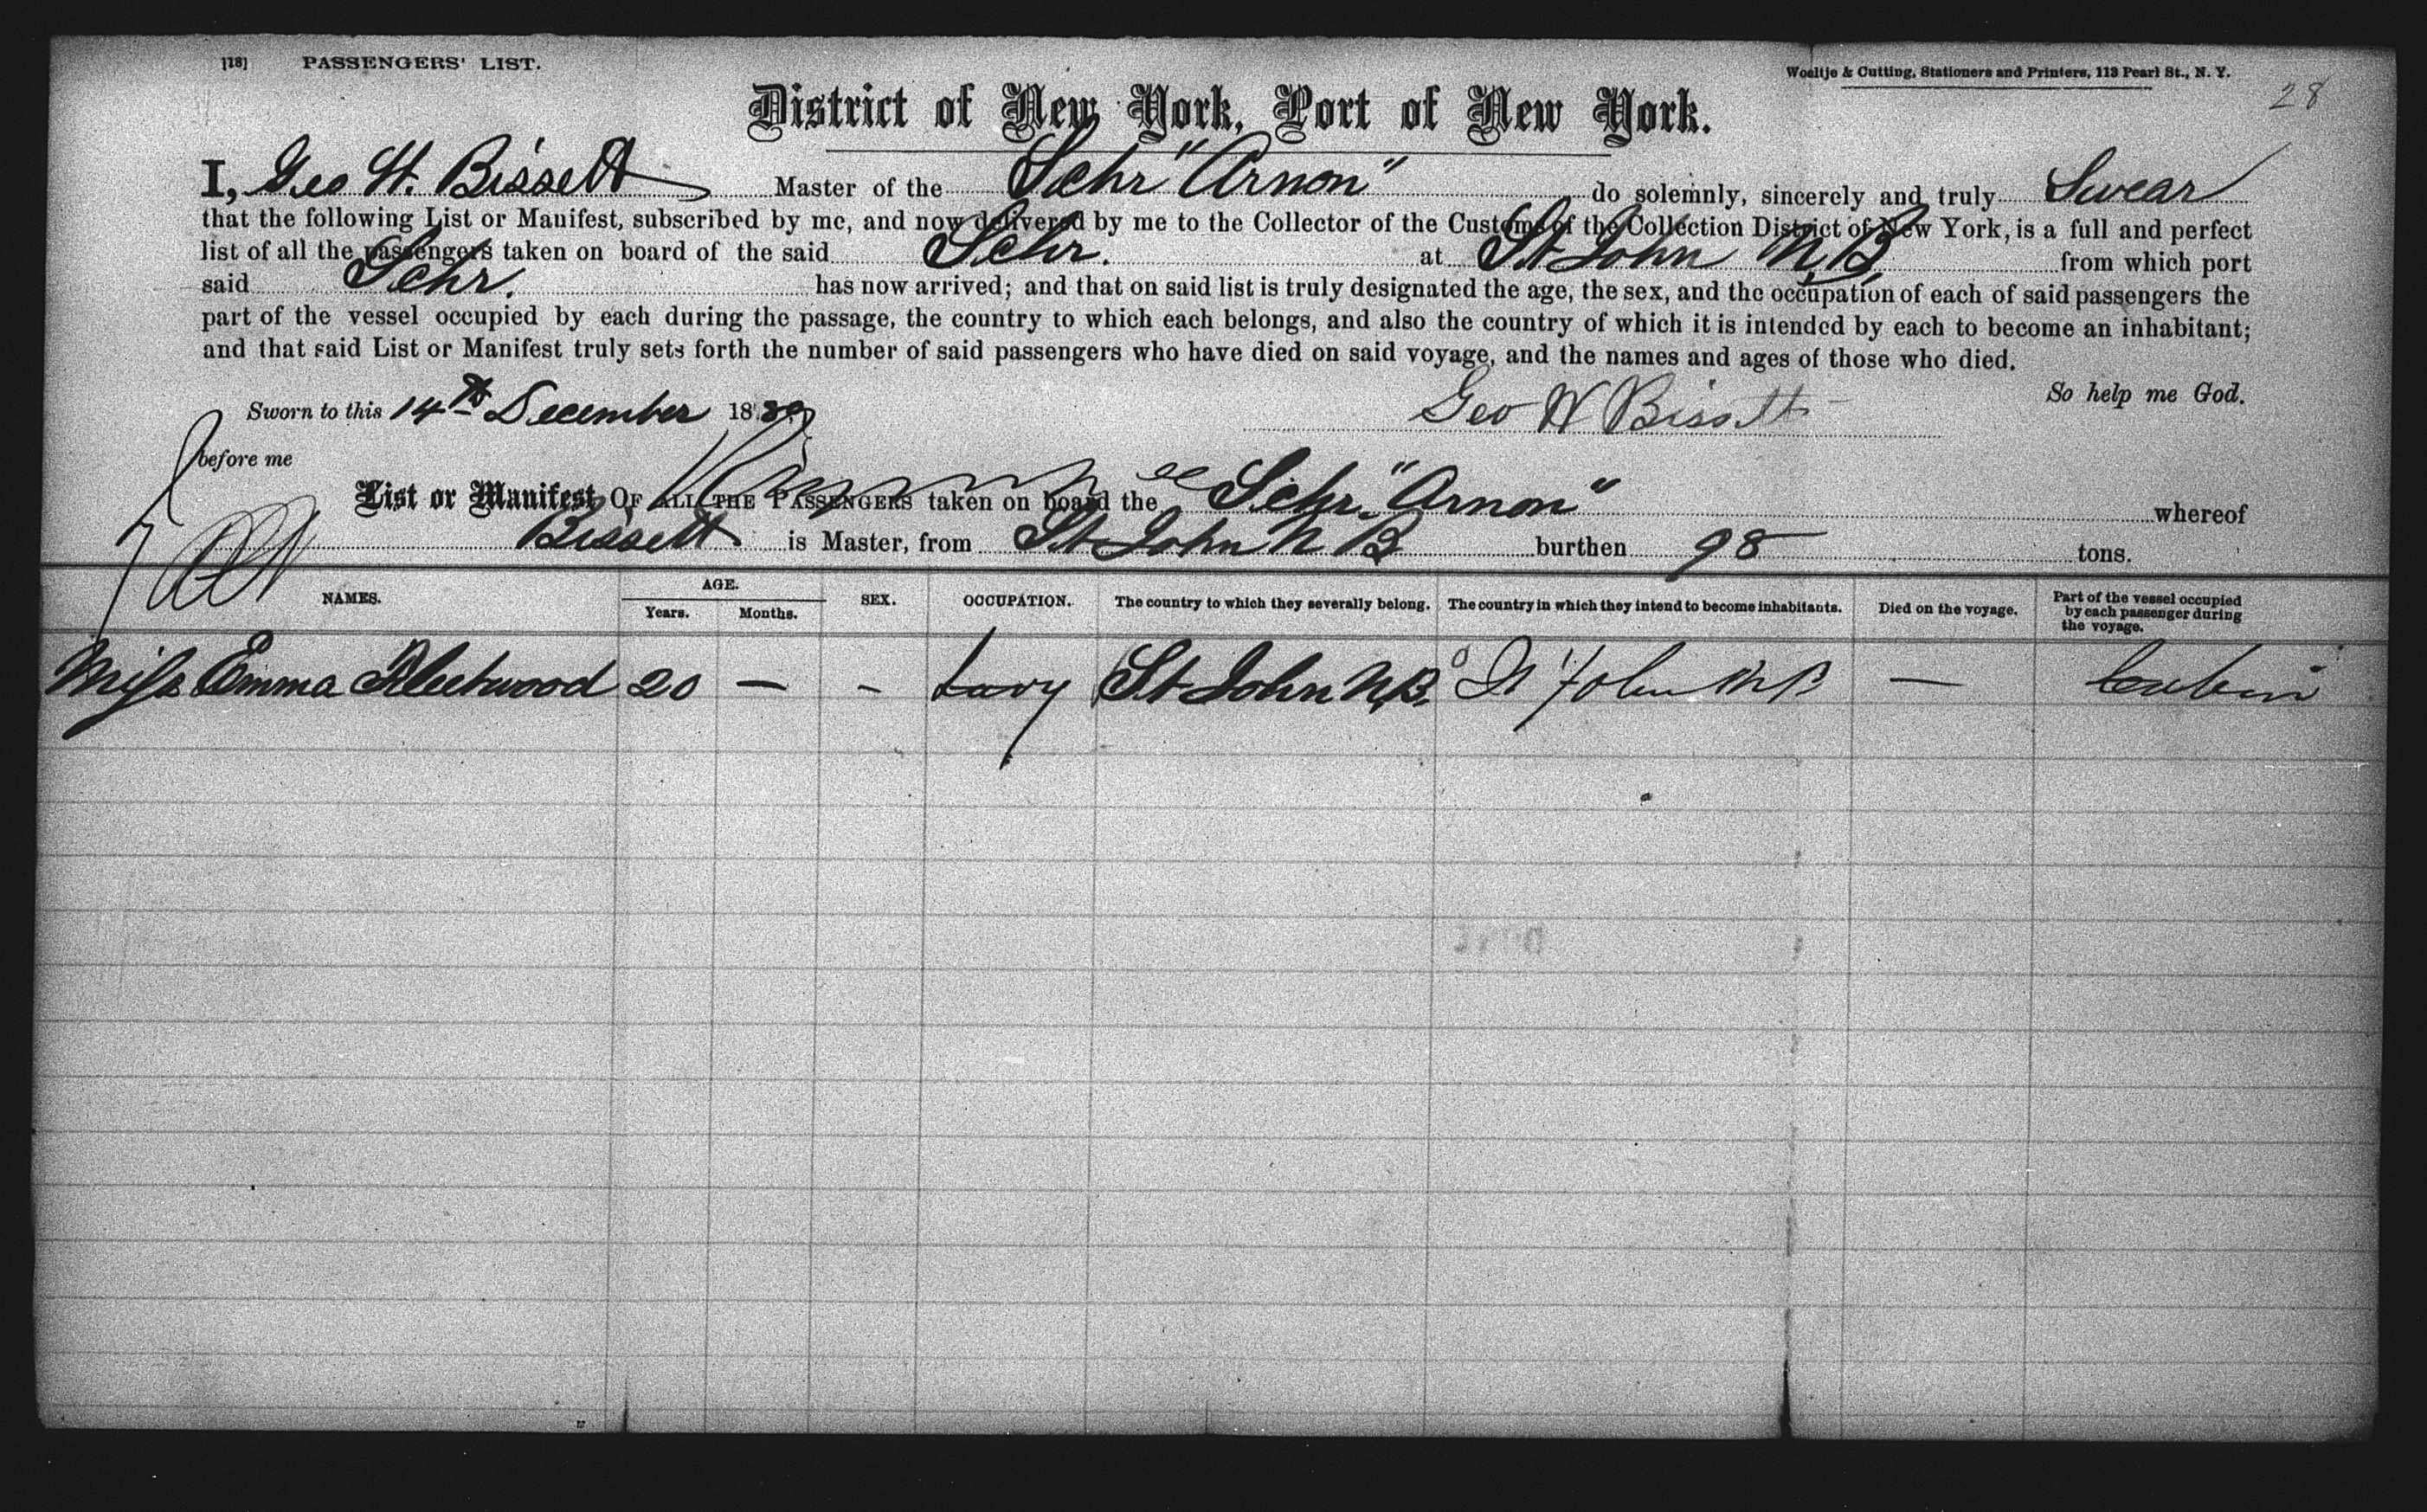 [18] PASSENGERS' LIST.
Woeltje & Cutting, Stationers and Printers, 113 Pearl St., N. Y.
28
District of New York, Port of New York.
I, Geo H. Bissett Master of the Schr "Arnon" do solemnly, sincerely and truly Swear
that the following List or Manifest, subscribed by me, and now delivered by me to the Collector of the Customs of the Collection District of New York, is a full and perfect
list of all the passengers taken on board of the said Schr. at St John N.B. from which port
said Schr. has now arrived; and that on said list is truly designated the age, the sex, and the occupation of each of said passengers the
part of the vessel occupied by each during the passage, the country to which each belongs, and also the country of which it is intended by each to become an inhabitant;
and that said List or Manifest truly sets forth the number of said passengers who have died on said voyage, and the names and ages of those who died.
So help me God.
Sworn to this 14th December 1889 Geo W Bissett
before me
List or Manifest OF ALL THE PASSENGERS taken on board the Schr. "Arnon" whereof
Bissett is Master, from St John N B burthen 98 tons.
NAMES. AGE. Years. Months. SEX. OCCUPATION. The country to which they severally belong. The country in which they intend to become inhabitants. Died on the voyage. Part of the vessel occupied by each passenger during the voyage.
Miss Emma Fleetwood 20 — - St John N.B. St John N B — Cabin